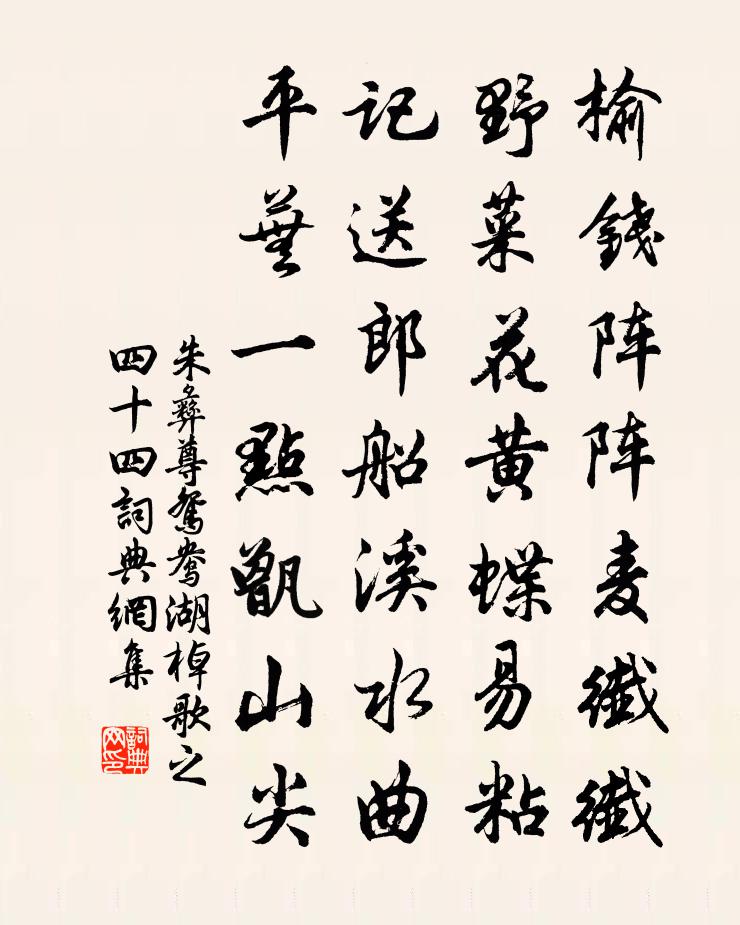 榆錢阵阵麦纖纖
野菜花黄蝶易粘
記送郎船溪水曲
平蕪一點甑山尖
朱彝尊鸳鸯湖棹歌之
四十四詞典網集
詞典网印